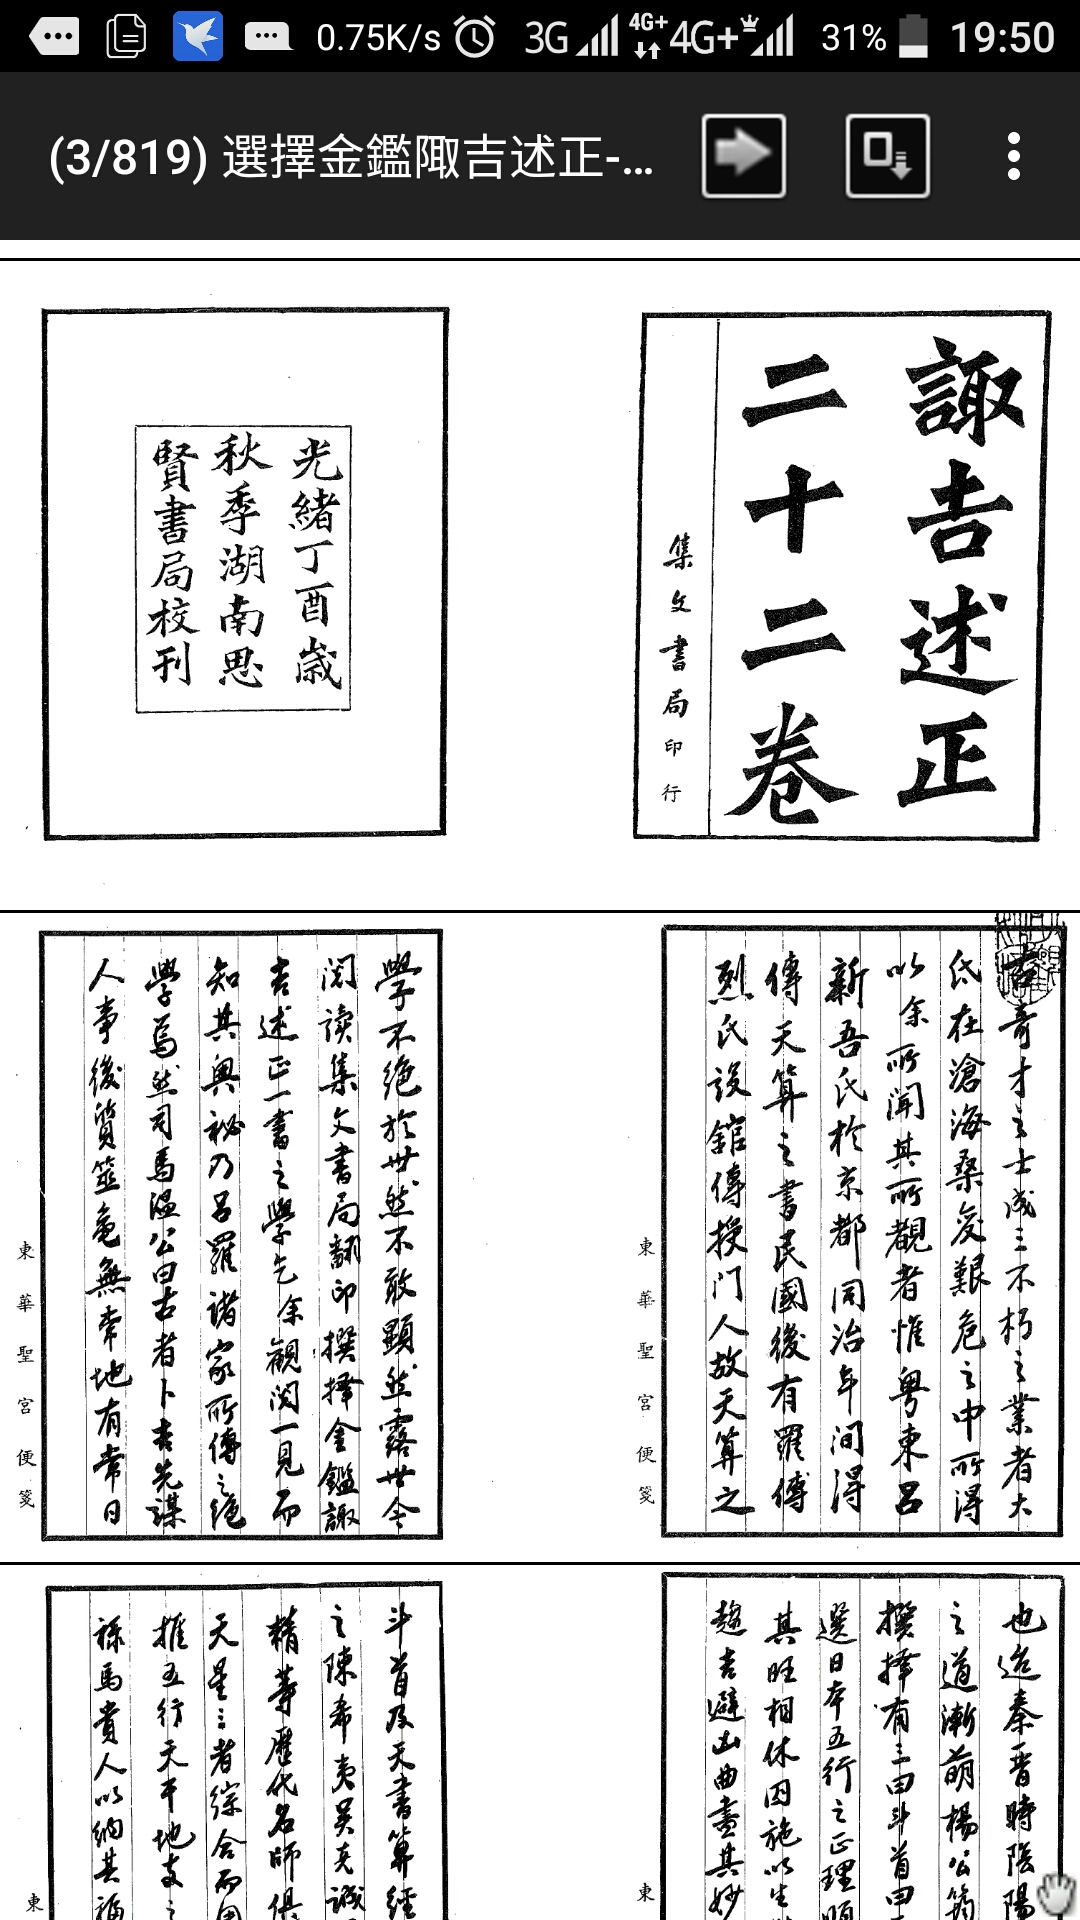 0.75K/s 3G 4G+ 4G+ 31% 19:50
(3/819) 選擇金鑑陬吉述正-...
諏吉述正
二十二卷
集文書局印行
光緒丁酉歲
秋季湖南思
賢書局校刊
古奇才之士成三不朽之業者大
氐在滄海桑变艱危之中所得
以余所聞其所觀者惟粤東呂
新吾氏於京都同治年间得
傳天算之書民國後有羅傳
烈氏設舘傳授門人故天算之
東華聖宮便箋
學不绝於世然不敢顯然露世今
閱讀集文書局翻印撰擇金鑑諏
吉述正一書之學乞余觀閱一見而
知其奥秘乃呂羅諸家所傳之绝
學焉然司馬温公曰古者卜吉先謀
人事後質筮龟無常地有常日
東華聖宮便箋
也迨秦晋時陰陽
之道漸萌楊公筠
撰擇有三曰斗首曰
選日本五行之正理順
其旺相休囚施以生
趨吉避凶曲盡其妙
東
斗首及天書算經
之陳希夷吴克誠
精蓦歷代名師俱
天星三者綜合而用
推五行天干地支之
禄馬貴人以納其福
東